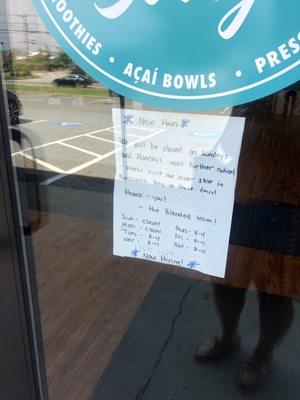 SMOOTHIES · AÇAÍ BOWLS · PRESS
New Hours
We will be closed on Sundays
and Mondays until further notice!
Please visit our sister store in
Buzzards Bay on those days!
Thank-you!
- the Blended team!
Sun - closed Thurs - 8-4
Mon - closed Fri - 8-4
Tues - 8-4 Sat - 8-4
Wed - 8-4
Now Hiring!